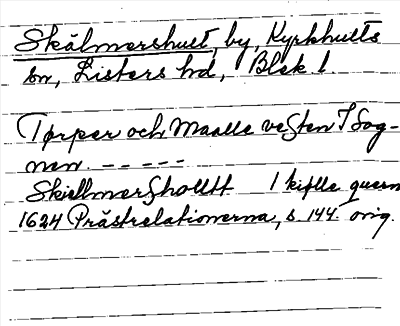 Skälmershult, by, Kyrkhults
sn, Listers hd, Blek l.
Tørper och Maalle vesten J Sog-
nen. - - - - -
Skiellmershollt 1 kiølle quern
1624 Prästrelationerna, s. 144. orig.